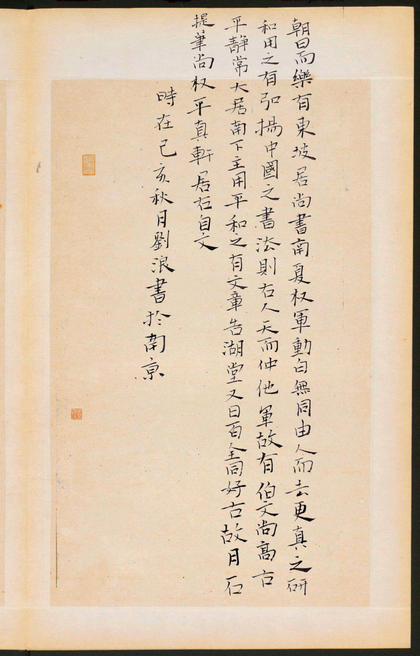 朝曰而樂有東坡居尚書南夏权軍動白無同由人而去更真之研
和用之有弘揚中國之書法則右人天而仲他軍故有伯文尚高古
平静常大居南下主用平和之有文章告湖堂又日百全同好古故月石
提筆尚权平真軒居右自文
時在己亥秋月劉浪書於南京